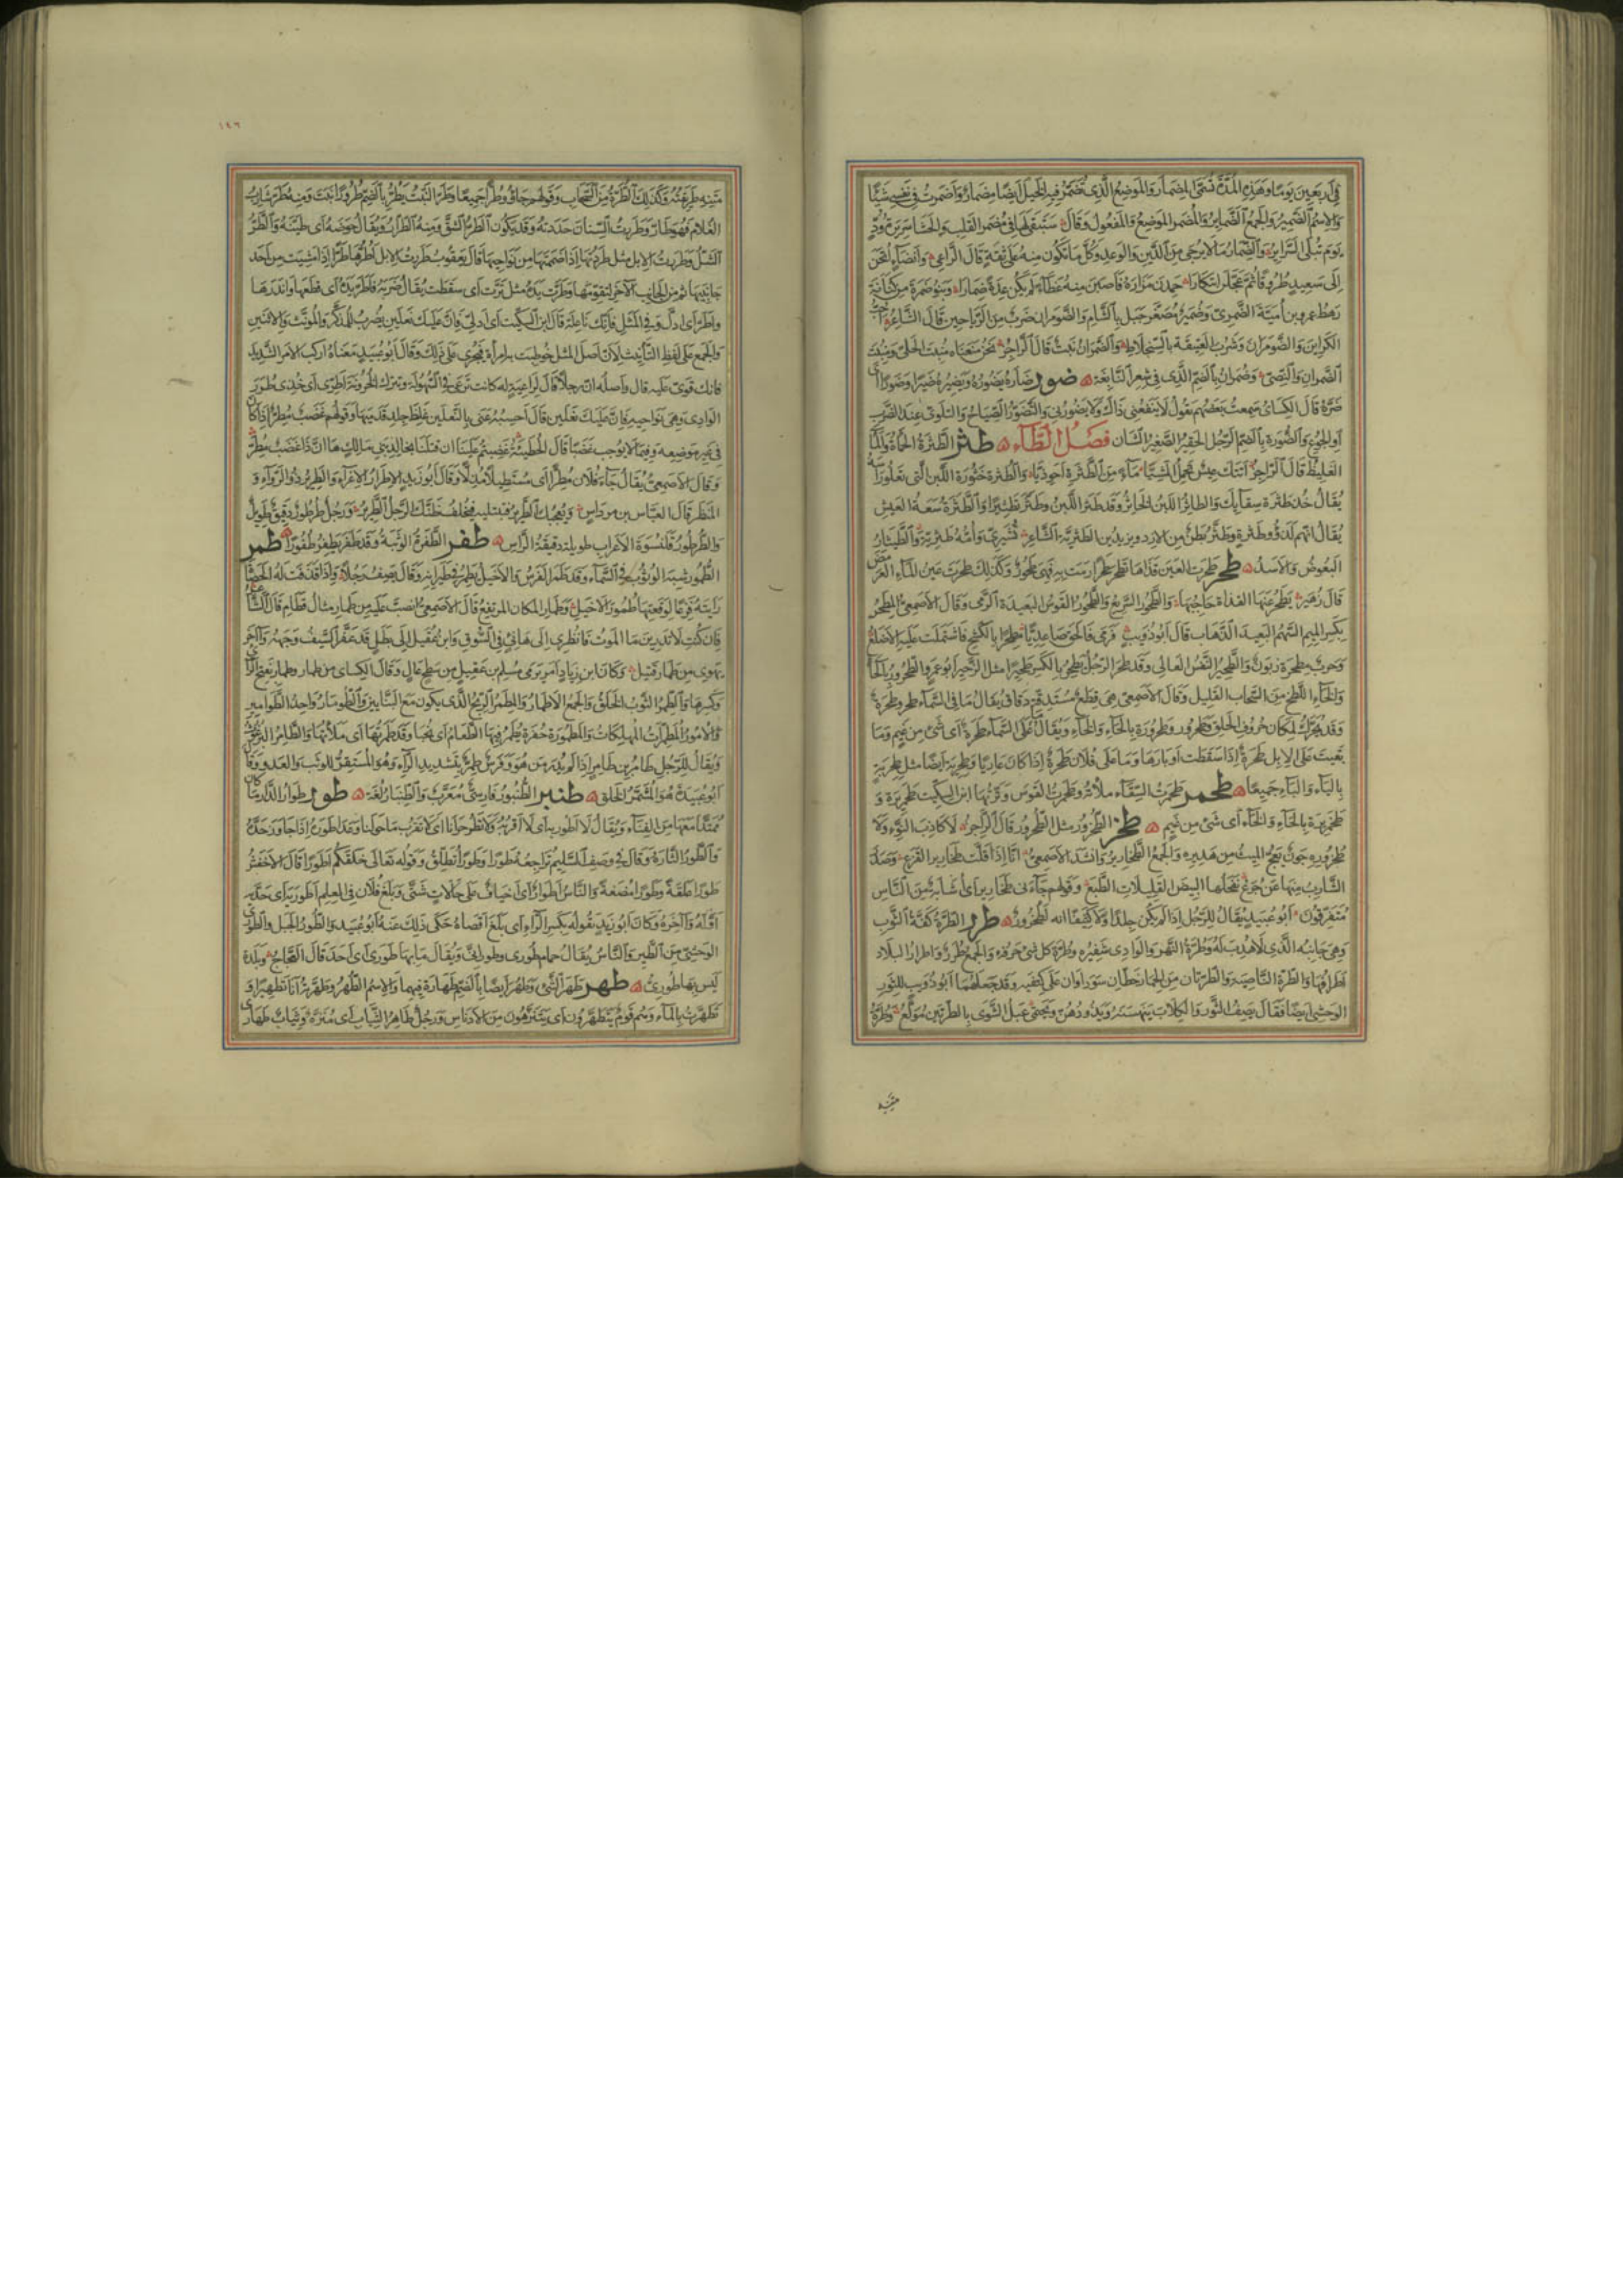 في اربعين يوما وهذه المدة تسمى المضمار والموضع الذي تضمر فيه الخيل ايضا مضمار واضمرت في نفسي شيئا
والاسم الضمير والجمع الضمائر والمضمر الموضع والمفعول وقال سيبقى لها في مضمر القلب والحشا سريرة ود
يوم تبلى السرائر والضمار ما لا يرجى من الدين والوعد وكل ما تكون منه على ثقة قال الراعي وانضاء انخن
الى سعيد طروقا ثم عجلن ابتكارا حمدن مزاره فاصبن منه عطاء لم يكن عدة ضمارا وبنو ضمرة من كنانة
رهط عمرو بن امية الضمري وضمير مصغر جبل بالشام والضومران ضرب من الرياحين قال الشاعر احب
الكرائن والضومران وشرب العتيقة بالسنجلاط والضمران نبت قال الراجز نحن منعنا منبت الحلي ومنبت
الضمران والنصي وضمران بالضم الذي في شعر النابغة ضور ضاره يضوره ويضيره ضيرا وضورا اي
ضره قال الكسائي سمعت بعضهم يقول لا ينفعني ذاك ولا يضورني والتضور الصياح والتلوي عند الضرب
او الجوع والضورة بالضم الرجل الحقير الصغير الشان فصل الطاء طثر الطثرة الحمأة والماء
الغليظ قال الراجز اتتك عيس تحمل المشيا ماء من الطثرة احوذيا والطثرة خثورة اللبن التي تعلو راسه
يقال خذ طثرة سقائك والطاثر اللبن الخاثر وقد طثر اللبن وطثر تطثيرا والطثرة سعة العيش
يقال انهم لذوو طثرة وطثر بطن من الازد ويزيد بن الطثرية الشاعر قشيري وامه طثرية والطيثار
البعوض والاسد طحر طحرت العين قذاها تطحر طحرا رمت به فهي طحور وكذلك طحرت عين الماء العرمض
قال زهير يطحر عنها القذاة حاجبها والطحور السريع والطحور القوس البعيدة الرمي وقال الاصمعي المطحر
بكسر الميم السهم البعيد الذهاب قال ابو ذؤيب فرمى فالحق صاعديا مطحرا بالكشح فاشتملت عليه الاضلع
وحرب مطحرة زبون والطحير النفس العالي وقد طحر الرجل يطحر بالكسر طحيرا مثل الزحير ابو عمرو الطحرور بالحاء
والخاء اللطخ من السحاب القليل وقال الاصمعي هي قطع مستدقة دقاق يقال ما في السماء طحر وطحرة
وقد يحرك لمكان حروف الحلق وطحرور وطخرورة بالحاء والخاء ويقال ما على السماء طحرة اي شيء من غيم وما
بقيت على الابل طحرة اذا سقطت اوبارها وما على فلان طحرة اذا كان عاريا وطحرية ايضا مثل طحربة
بالياء والباء جميعا طحمر طحمرت السقاء ملاته وطحمرت القوس وترتها ابن السكيت طحمريرة و
طخمريرة بالحاء والخاء اي شيء من غيم طخر الطخرور مثل الطحرور قال الراجز لا كاذب النوء ولا
طخروره جون يعج الميث من هديره والجمع الطخارير وانشد الاصمعي انا اذا قلت طخارير القزع وصدر
الشارب منها عن جرع نفحلها البيض القليلات الطبع وقولهم جاءني طخارير اي اشابة من الناس
متفرقون ابو عبيد يقال للرجل اذا لم يكن جلدا ولا كثيفا انه لطخرور طرر الطرة كفة الثوب
وهي جانبه الذي لا هدب له وطرة النهر والوادي شفيره وطرة كل شيء حرفه والجمع طرر واطرار البلاد
اطرافها والطرة الناصية والطرتان من الحمار خطان سوداوان على كتفيه وقد جعلهما ابو ذؤيب للثور
الوحشي ايضا فقال يصف الثور والكلاب ينهسنه ويذودهن ويحتمي عبل الشوى بالطرتين مولع وطرة
متنه
١٩٦
متنه طريقته وكذلك الطرة من السحاب وقولهم جاؤا طرا اي جميعا وطر النبت يطر بالضم طرورا نبت ومنه طر شارب
الغلام فهو طار وطررت السنان حددته وقد يكون الطر الشق ومنه الطرار ويقال طر حوضه اي طينه والطر
الشل وطررت الابل مثل طردتها اذا ضممتها من نواحيها قال يعقوب طررت الابل اطرها طرا اذا مشيت من احد
جانبيها ثم من الجانب الآخر لتقومها وطرت يده مثل ترت اي سقطت يقال ضربه فاطر يده اي قطعها واندرها
واطر اي ادل وفي المثل اطري فانك ناعلة قال ابن السكيت اي ادلي فان عليك نعلين يضرب للمذكر والمؤنث والاثنين
والجمع على لفظ التانيث لان اصل المثل خوطبت به امراة فيجري على ذلك وقال ابو عبيد معناه اركب الامر الشديد
فانك قوي عليه قال واصله ان رجلا قال لراعية له كانت ترعى في السهولة وتترك الحزونة اطري اي خذي طرر
الوادي وهي نواحيه فان عليك نعلين قال احسبه عنى بالنعلين غلظ جلد قدميها وقولهم غضب مطر اذا كان
في غير موضعه وفيما لا يوجب غضبا قال الحطيئة غضبتم علينا ان قتلنا بخالد بني مالك ها ان ذا غضب مطر
وقال الاصمعي يقال جاء فلان مطرا اي مستطيلا مدلا وقال ابو زيد الاطرار الاغراء والطرير ذو الرواء و
المنظر قال العباس بن مرداس ويعجبك الطرير فتبتليه فيخلف ظنك الرجل الطرير ورجل طرطور دقيق طويل
والطرطور قلنسوة الاعراب طويلة دقيقة الراس طفر الطفرة الوثبة وقد طفر يطفر طفورا طمر
الطمور شبه الوثوب في السماء وقد طمر الفرس والاخيل يطمر في طيرانه وقال يصف رجلا واذا قذفت له الحصاة
رايته فزعا لوقعتها طمور الاخيل وطمار المكان المرتفع قال الاصمعي انصب عليه من طمار مثال قطام قال الشاعر
فان كنت لا تدرين ما الموت فانظري الى هانئ في السوق وابن عقيل الى بطل قد عفر السيف وجهه وآخر
يهوي من طمار قتيل وكان ابن زياد امر برمي مسلم بن عقيل من سطح عال وقال الكسائي من طمار وطمار بفتح الراء
وكسرها والطمر الثوب الخلق والجمع الاطمار والمطمر الزيج الذي يكون مع البنائين والطومار واحد الطوامير
والامور المطمرات المهلكات والمطمورة حفرة يطمر فيها الطعام اي يخبا وقد طمرتها اي ملاتها والطامر البرغوث
ويقال للرجل طامر بن طامر اذا لم يدر من هو وفرس طمر بتشديد الراء وهو المستفز للوثب والعدو وقال
ابو عبيدة هو المشمر الخلق طنبر الطنبور فارسي معرب والطنبار لغة طور طوار الدار ما كان
ممتدا معها من الفناء ويقال لا اطور به اي لا اقربه ولا تطر حرانا اي لا تقرب ما حولنا وعدا طوره اذا جاوز حده
والطور التارة وقال في وصف السليم تراجعه طورا وطورا تطلق وقوله تعالى خلقكم اطوارا قال الاخفش
طورا علقة وطورا مضغة والناس اطوار اي اخياف على حالات شتى وبلغ فلان في العلم اطوريه اي حديه
اوله وآخره وكان ابو زيد يقوله بكسر الراء اي بلغ اقصاه حكى ذلك عنه ابو عبيد والطور الجبل والطوري
الوحشي من الطير والناس يقال حمام طوري وطوراني ويقال ما بها طوري اي احد قال العجاج وبلدة
ليس بها طوري طهر طهر الشيء وطهر ايضا بالضم طهارة فيهما والاسم الطهر وطهرته انا تطهيرا و
تطهرت بالماء وهم قوم يتطهرون اي يتنزهون من الادناس ورجل طاهر الثياب اي منزه وثياب طهارى